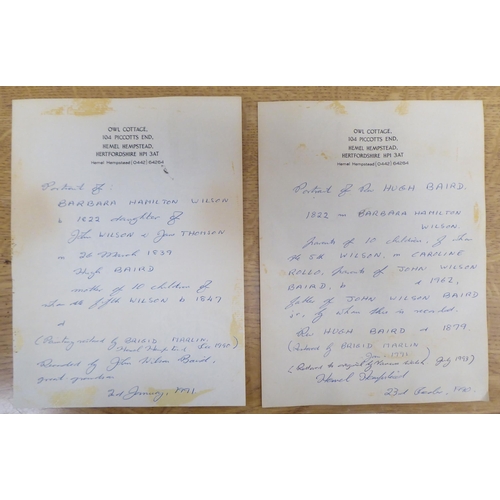 OWL COTTAGE,
104 PICCOTTS END,
HEMEL HEMPSTEAD,
HERTFORDSHIRE HP1 3AT
Hemel Hempstead (0442) 64064
Portrait of:
BARBARA HAMILTON WILSON
b 1822 daughter of
John WILSON & Jane THOMSON
m 26 March 1839
Hugh BAIRD
mother of 10 children of
whom the fifth WILSON b 1847
d
(Painting restored by BRIGID MARLIN,
Hemel Hempstead 1990)
Recorded by John Wilson Baird,
great grandson
2nd January, 1991
OWL COTTAGE,
104 PICCOTTS END,
HEMEL HEMPSTEAD,
HERTFORDSHIRE HP1 3AT
Hemel Hempstead (0442) 64064
Portrait of Rev HUGH BAIRD.
1822 m BARBARA HAMILTON
WILSON.
parents of 10 children, of whom
the 5th WILSON, m CAROLINE
ROLLO, parents of JOHN WILSON
BAIRD, b d 1962,
father of JOHN WILSON BAIRD
by whom this is recorded.
Rev HUGH BAIRD d 1879
(Restored by BRIGID MARLIN
Jan 1991)
(Restored to original by July 1993)
Hemel Hempstead
23rd 1990.